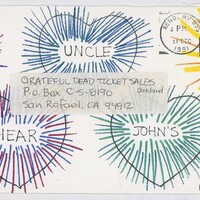 UNCLE
PM
DEC
1991
GRATEFUL DEAD TICKET SALES
P.O. Box C-S-8190
Oakland
San Rafael, CA 94912
HEAR
JOHN'S